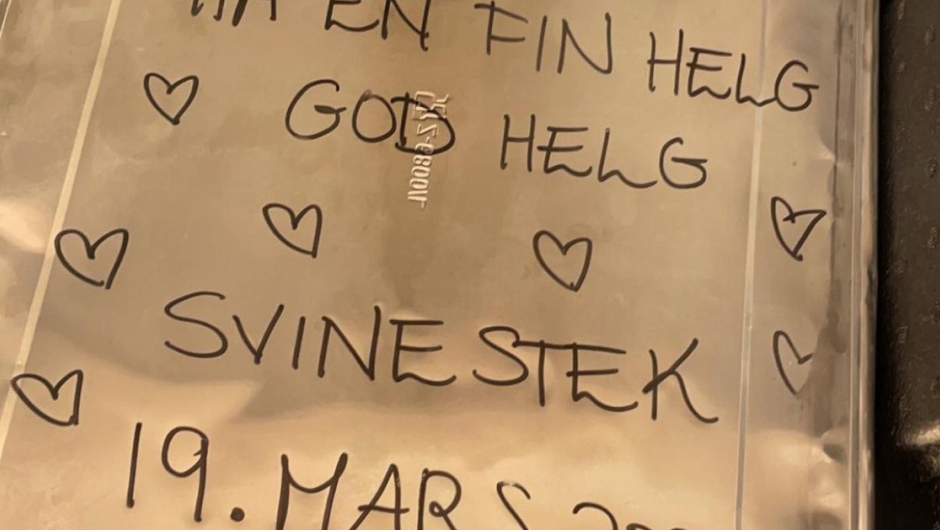 HA EN FIN HELG
GOD HELG
SVINESTEK
19. MARS